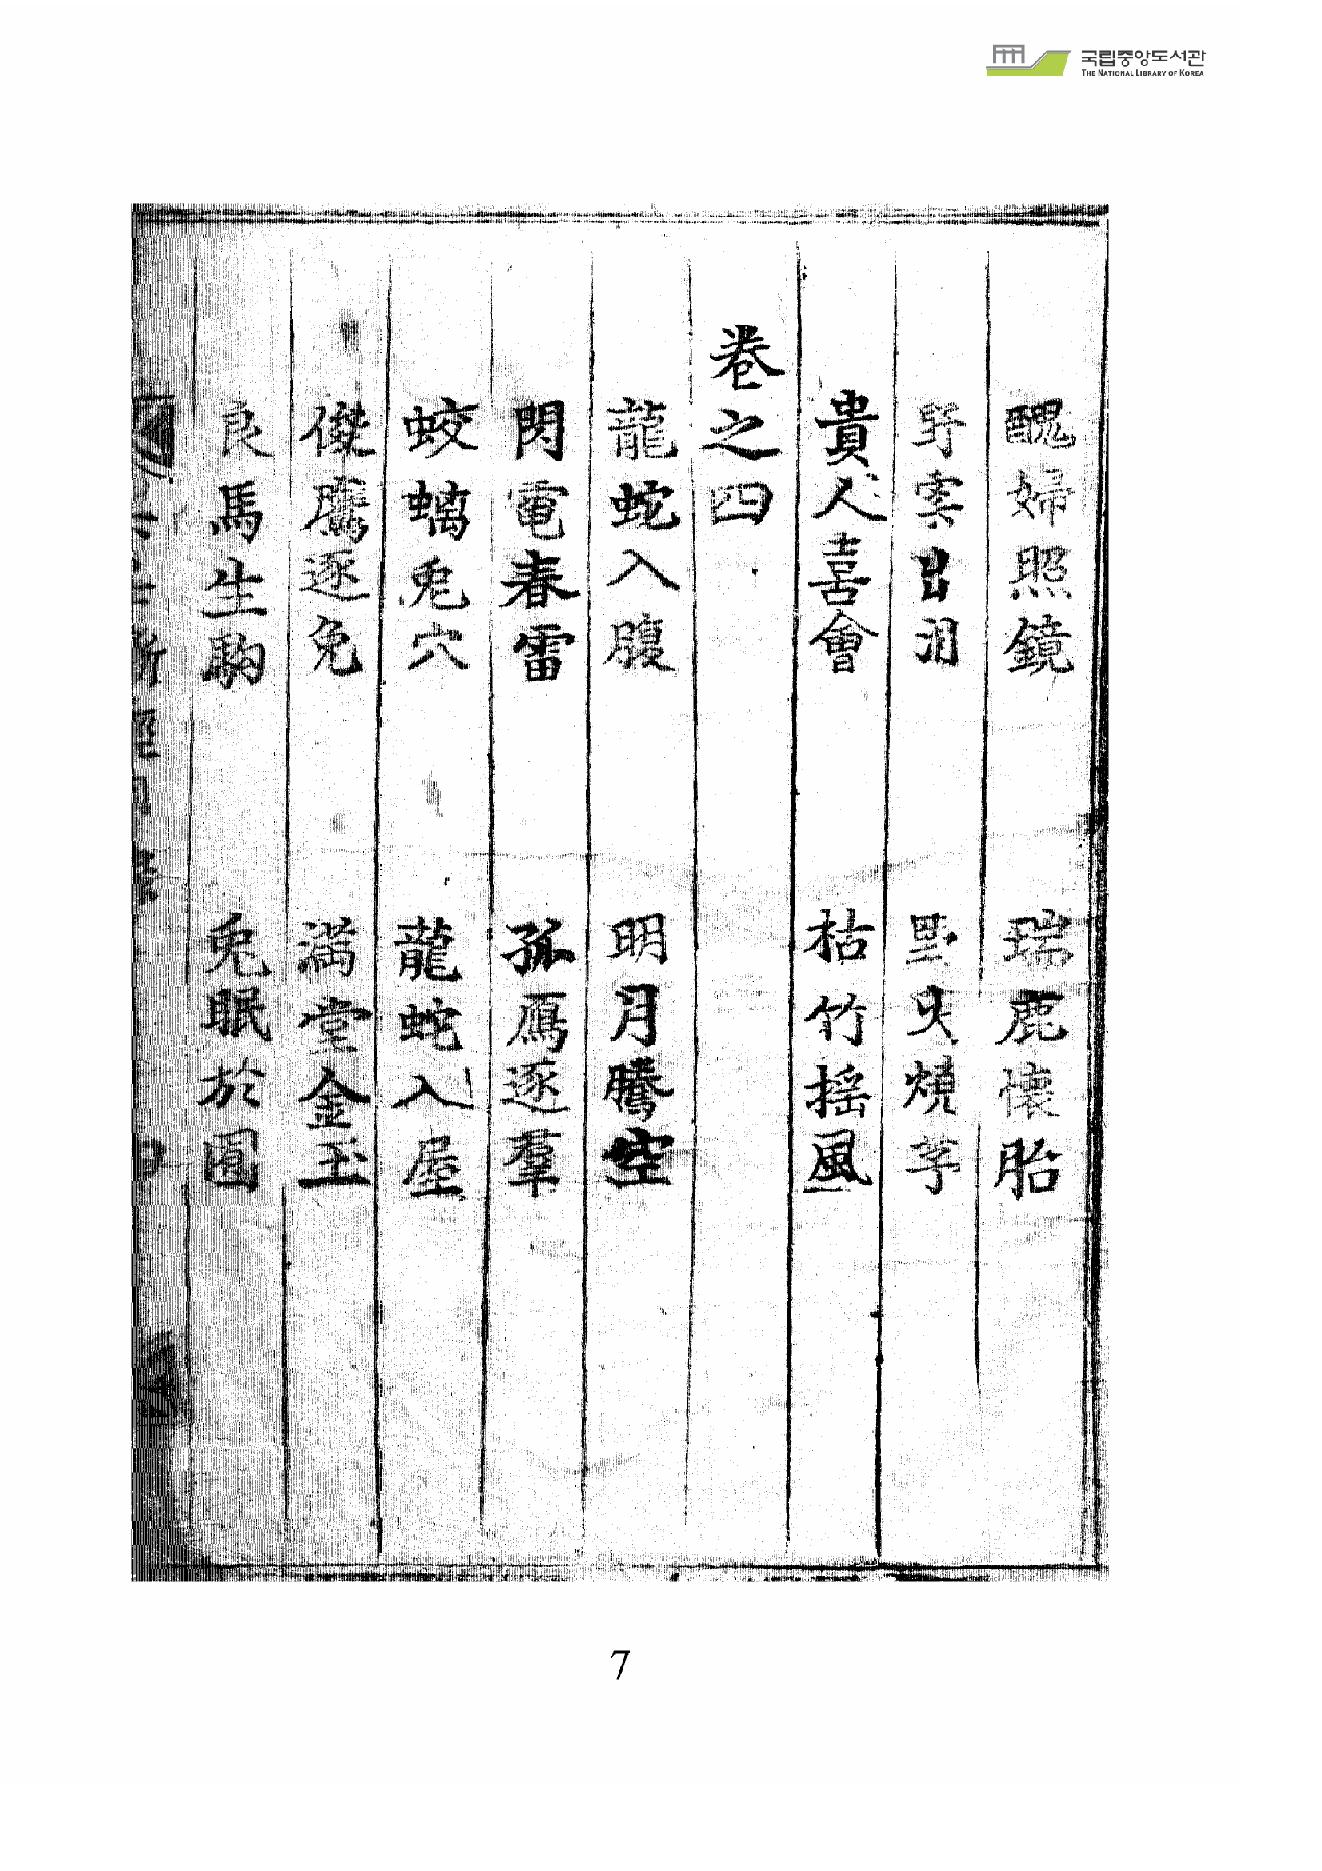 국립중앙도서관
THE NATIONAL LIBRARY OF KOREA
醜婦照鏡 瑞鹿懷胎
野叟出泪 野火燒芋
貴人喜會 枯竹搖風
卷之四
龍蛇入腹 明月騰空
閃電春雷 孤鴈逐羣
蛟螭兎穴 龍蛇入屋
俊鷹逐兔 滿堂金玉
良馬生駒 兎眠於園
7